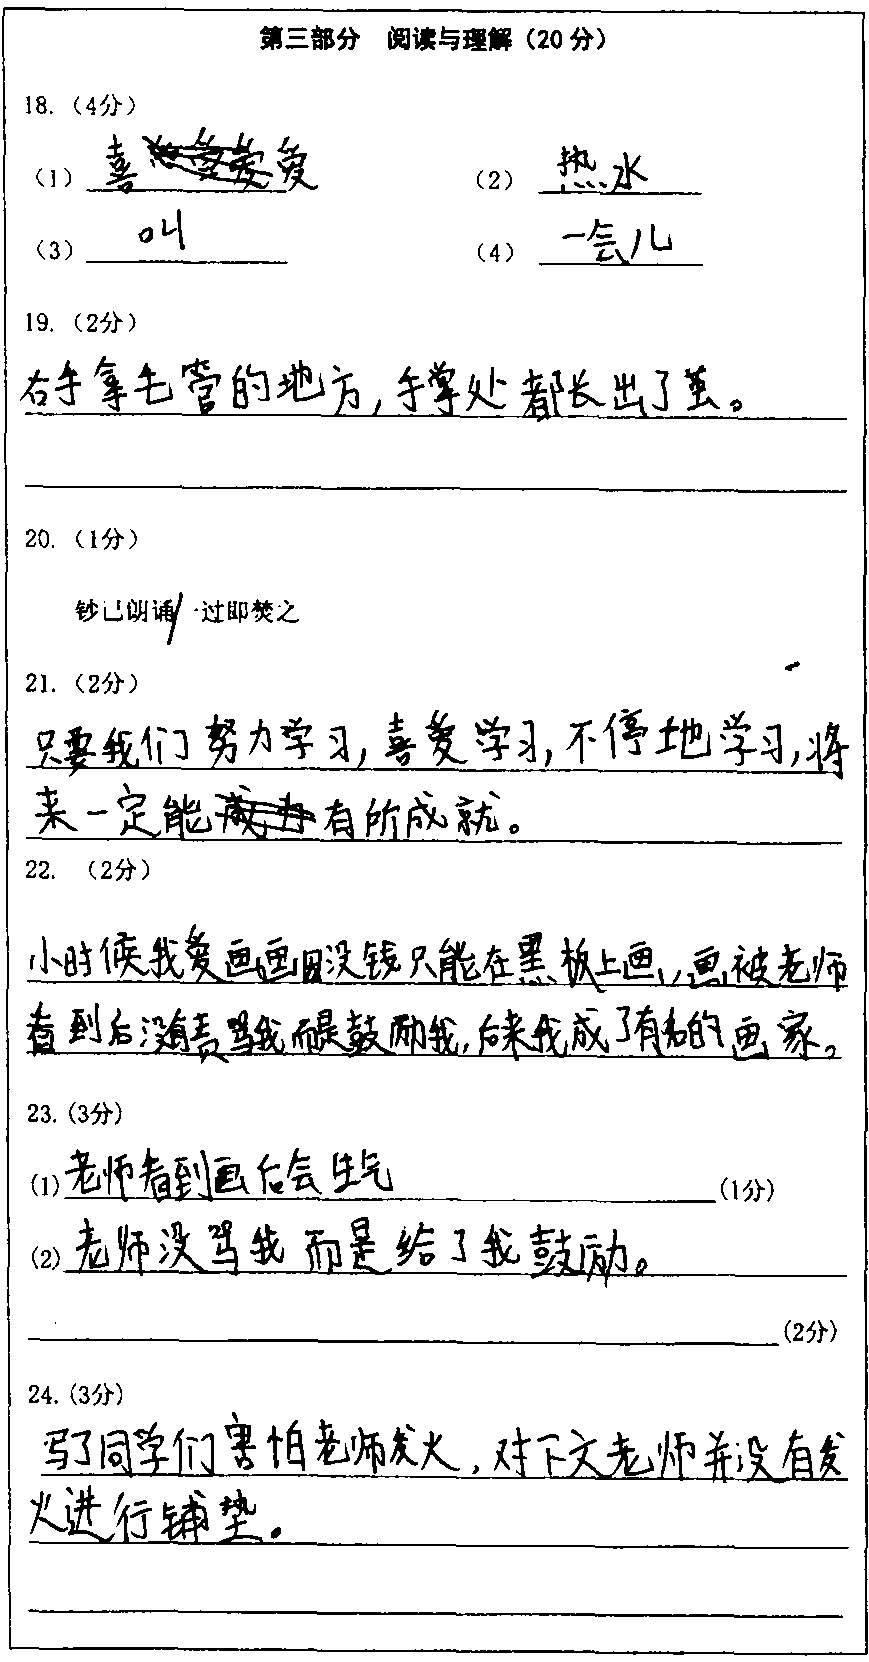 第三部分 阅读与理解（20分）
18.（4分）
（1）喜爱 （2）热水
（3）叫 （4）一会儿
19.（2分）
右手拿毛管的地方,手掌处都长出了茧。
20.（1分）
钞已朗诵/一过即焚之
21.（2分）
只要我们努力学习,喜爱学习,不停地学习,将
来一定能有所成就。
22.（2分）
小时候我爱画画因没钱只能在黑板上画,画被老师
看到后没有责骂我而是鼓励我,后来我成了有名的画家。
23.(3分)
(1)老师看到画后会生气(1分)
(2)老师没骂我而是给了我鼓励。
(2分)
24.(3分)
写了同学们害怕老师发火,对下文老师并没有发
火进行铺垫。